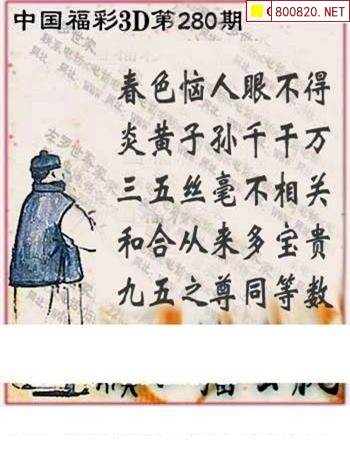 中国福彩3D第280期
800820.NET
春色恼人眼不得
炎黄子孙千千万
三五丝毫不相关
和合从来多宝贵
九五之尊同等数